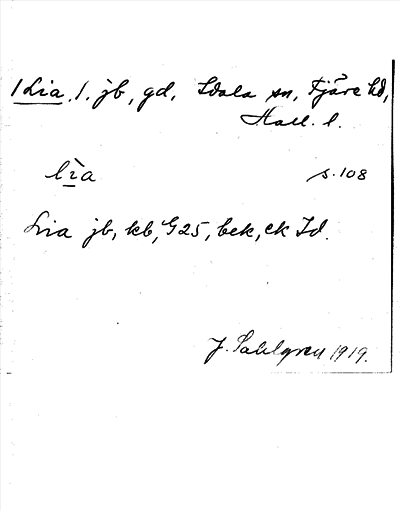 /Lia./. jb, gd. Idala sn, Fjäre hd,
Hall. l.
lìa s. 108
Lia jb, kb, G25, bek, ek Id.
J. Sahlgren 1919.